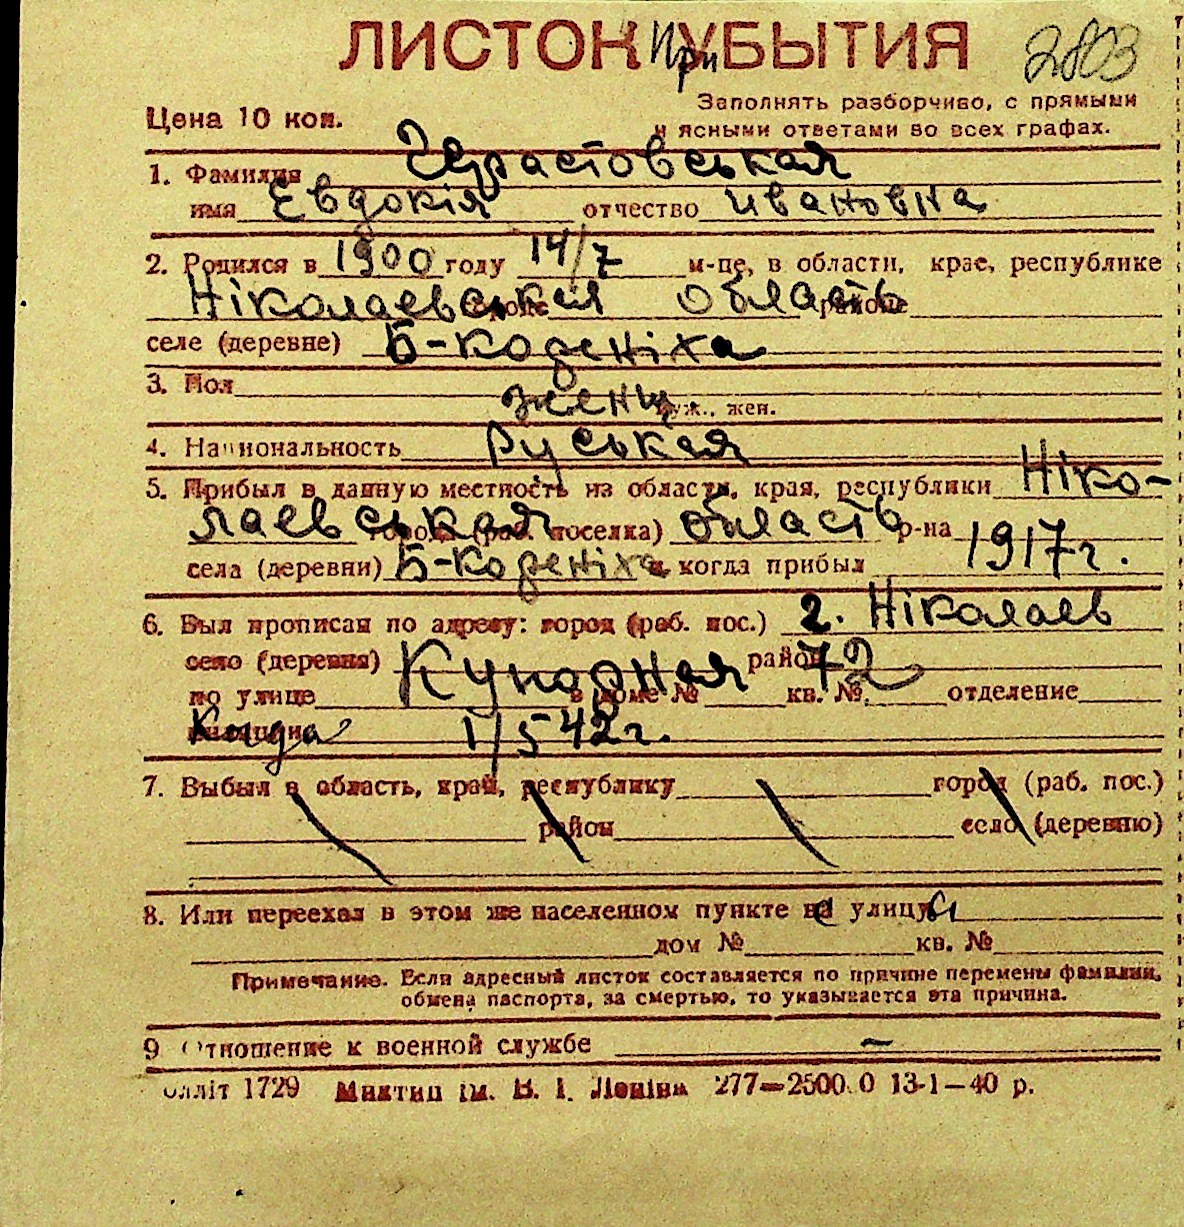 ЛИСТОК При УБЫТИЯ 2803
Цена 10 коп.
Заполнять разборчиво, с прямыми
и ясными ответами во всех графах.
1. Фамилия
имя Евдокія отчество ивановна
2. Родился в 1900 году 14/7 м-це, в области, крае, республике
Ніколаевськая городе область районе
селе (деревне) Б-коденіха
3. Пол женщ.
муж., жен.
4. Национальность Руськая
5. Прибыл в данную местность из области, края, республики Ніко-
лаевськая города (раб. поселка) область р-на
села (деревни) Б-коденіха и когда прибыл 1917 г.
6. Был прописан по адресу: город (раб. пос.) г. Ніколаев
село (деревня) Купорная район 72
по улице в доме № кв. № отделение
милиции Куда 1/5 42 г.
7. Выбыл в область, край, республику город (раб. пос.)
район село (деревню)
8. Или переехал в этом же населенном пункте на улицу
дом № кв. №
Примечание. Если адресный листок составляется по причине перемены фамилии,
обмена паспорта, за смертью, то указывается эта причина.
9 Отношение к военной службе –
олліт 1729 Миктип ім. В. І. Леніна 277—2500.0 13-1—40 р.